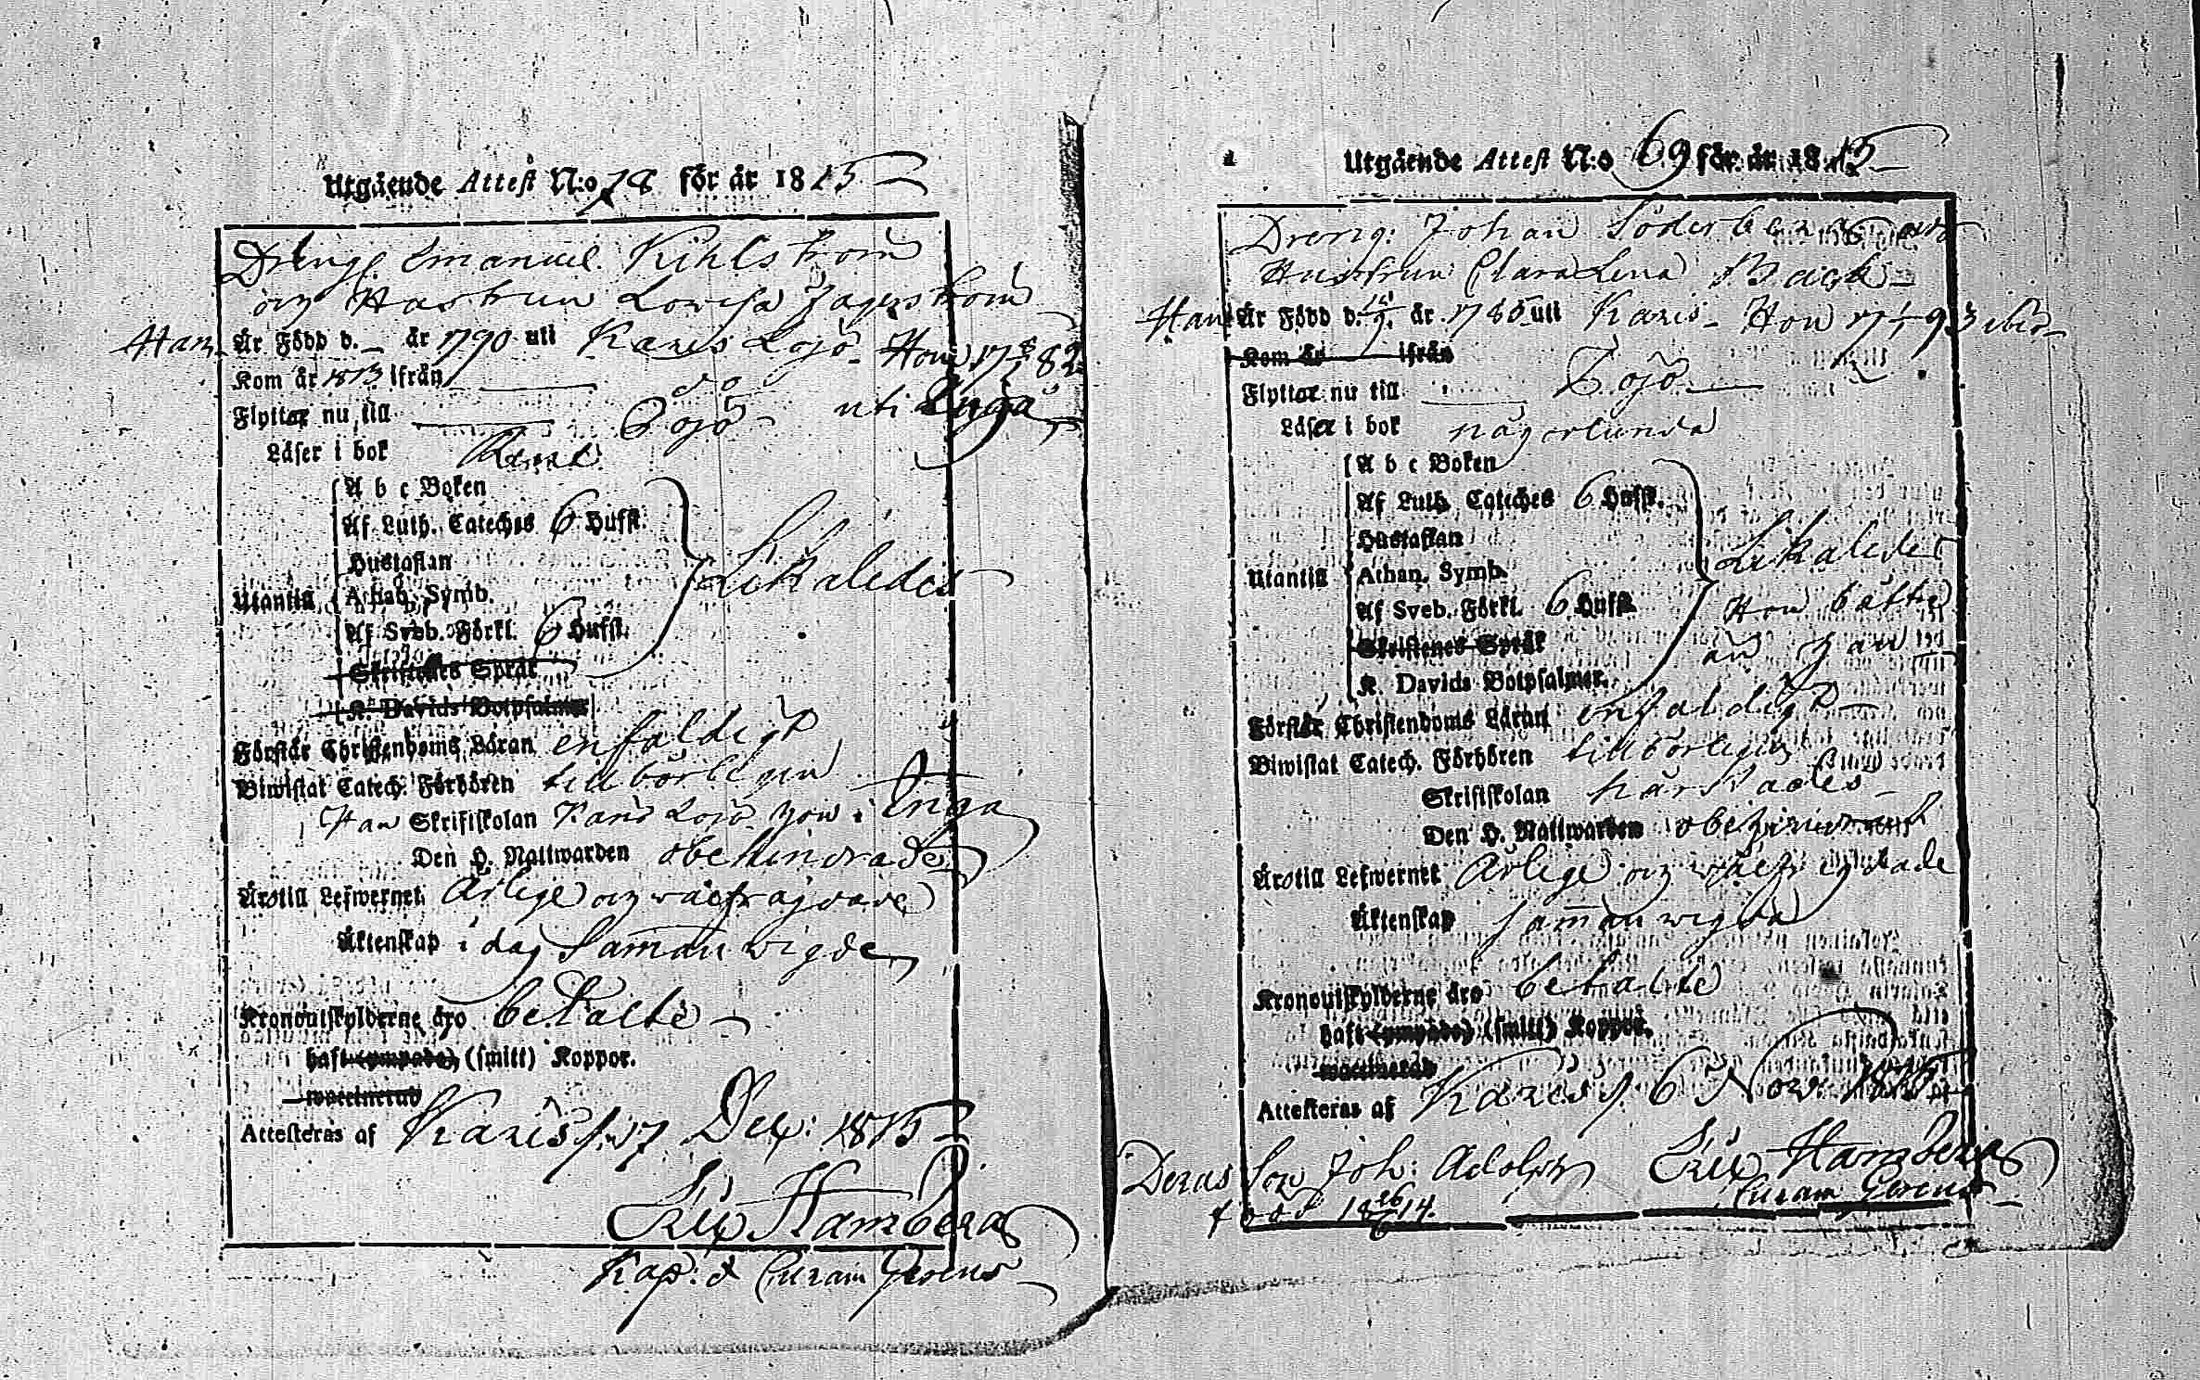 Utgående Attest N:o 78 för år 1815
Dreng: Emanuel Kihlström
och Hustrun Lovisa Jägerström
Han Är Född d. – år 1790 uti Karis Lojo – Hon 1782
Kom år 1813 ifrån
uti Ingå
Flyttar nu till Lojo
Läser i bok Rent
Utantill
A b c Boken
Af Luth. Cateches 6 Hufst.
Hustaflan
Athan. Symb.
Af Sveb. Förkl. 6 Hufst.
Skriftenes Språk
K. Davids Botpsalmer
Likaledes
Förstår Christendoms Läran enfaldigt
Biwistat Catech. Förhören tillbörligen
Han Skriftskolan Karis Lojo hon i Inga
Den H. Nattwarden obehindrade
Äro till Lefwernet Ärlige och wälfrägdade
Äktenskap i dag Samman wigde
Kronoutskylderne äro betalte
haft (ympade) (smitt) Koppor.
waccinerad
Attesteras af Karis d. 17 Dec: 1815
Hamberg
Kap: & Curam Gerens
Utgående Attest N:o 69 för år 1815
Dreng: Johan Söderberg och
Hustrun Clara Lena Back
Han Är Född d. år 1785 uti Karis – Hon 1793 ibid
Kom år ifrån
Flyttar nu till Lojo
Läser i bok någorlunda
Utantill
A b c Boken
Af Luth. Cateches 6 Hufst.
Hustaflan
Athan. Symb.
Af Sveb. Förkl. 6 Hufst.
Skriftenes Språk
K. Davids Botpsalmer.
Likaledes
Hon bättre
än han
Förstår Christendoms Läran enfaldigt
Biwistat Catech. Förhören tillbörligen
Skriftskolan härstädes
Den H. Nattwarden obehindrat
Äro till Lefwernet Ärlige och wälfrägdade
Äktenskap samman wigda
Kronoutskylderne äro betalte
haft (ympade) (smitt) Koppor.
waccinerad
Attesteras af Karis d. 6 Nov: 1815
Deras Son Joh: Adolph Hamberg
född 18 26/6 14. Curam Gerens